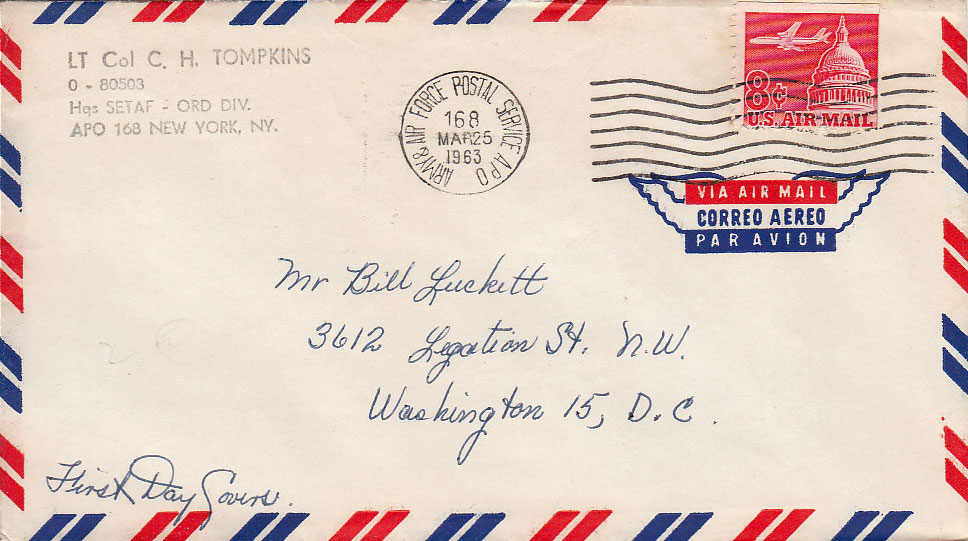 LT Col C. H. TOMPKINS
0 - 80503
Hqs SETAF - ORD DIV.
APO 168 NEW YORK, NY.
ARMY & AIR FORCE POSTAL SERVICE APO
168
MAR 25
1963
8¢
U.S. AIR MAIL
VIA AIR MAIL
CORREO AEREO
PAR AVION
Mr Bill Luckett
3612 Legation St. N.W.
Washington 15, D.C.
First Day Covers.